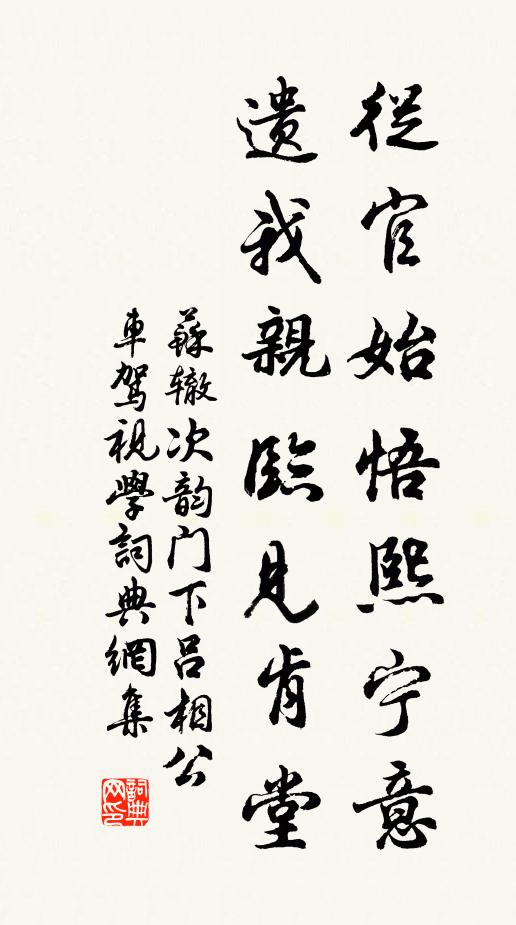 從官始悟熙宁意
遺我親臨見肯堂
蘇辙次韵门下呂相公
車駕視學詞典網集
詞典网印